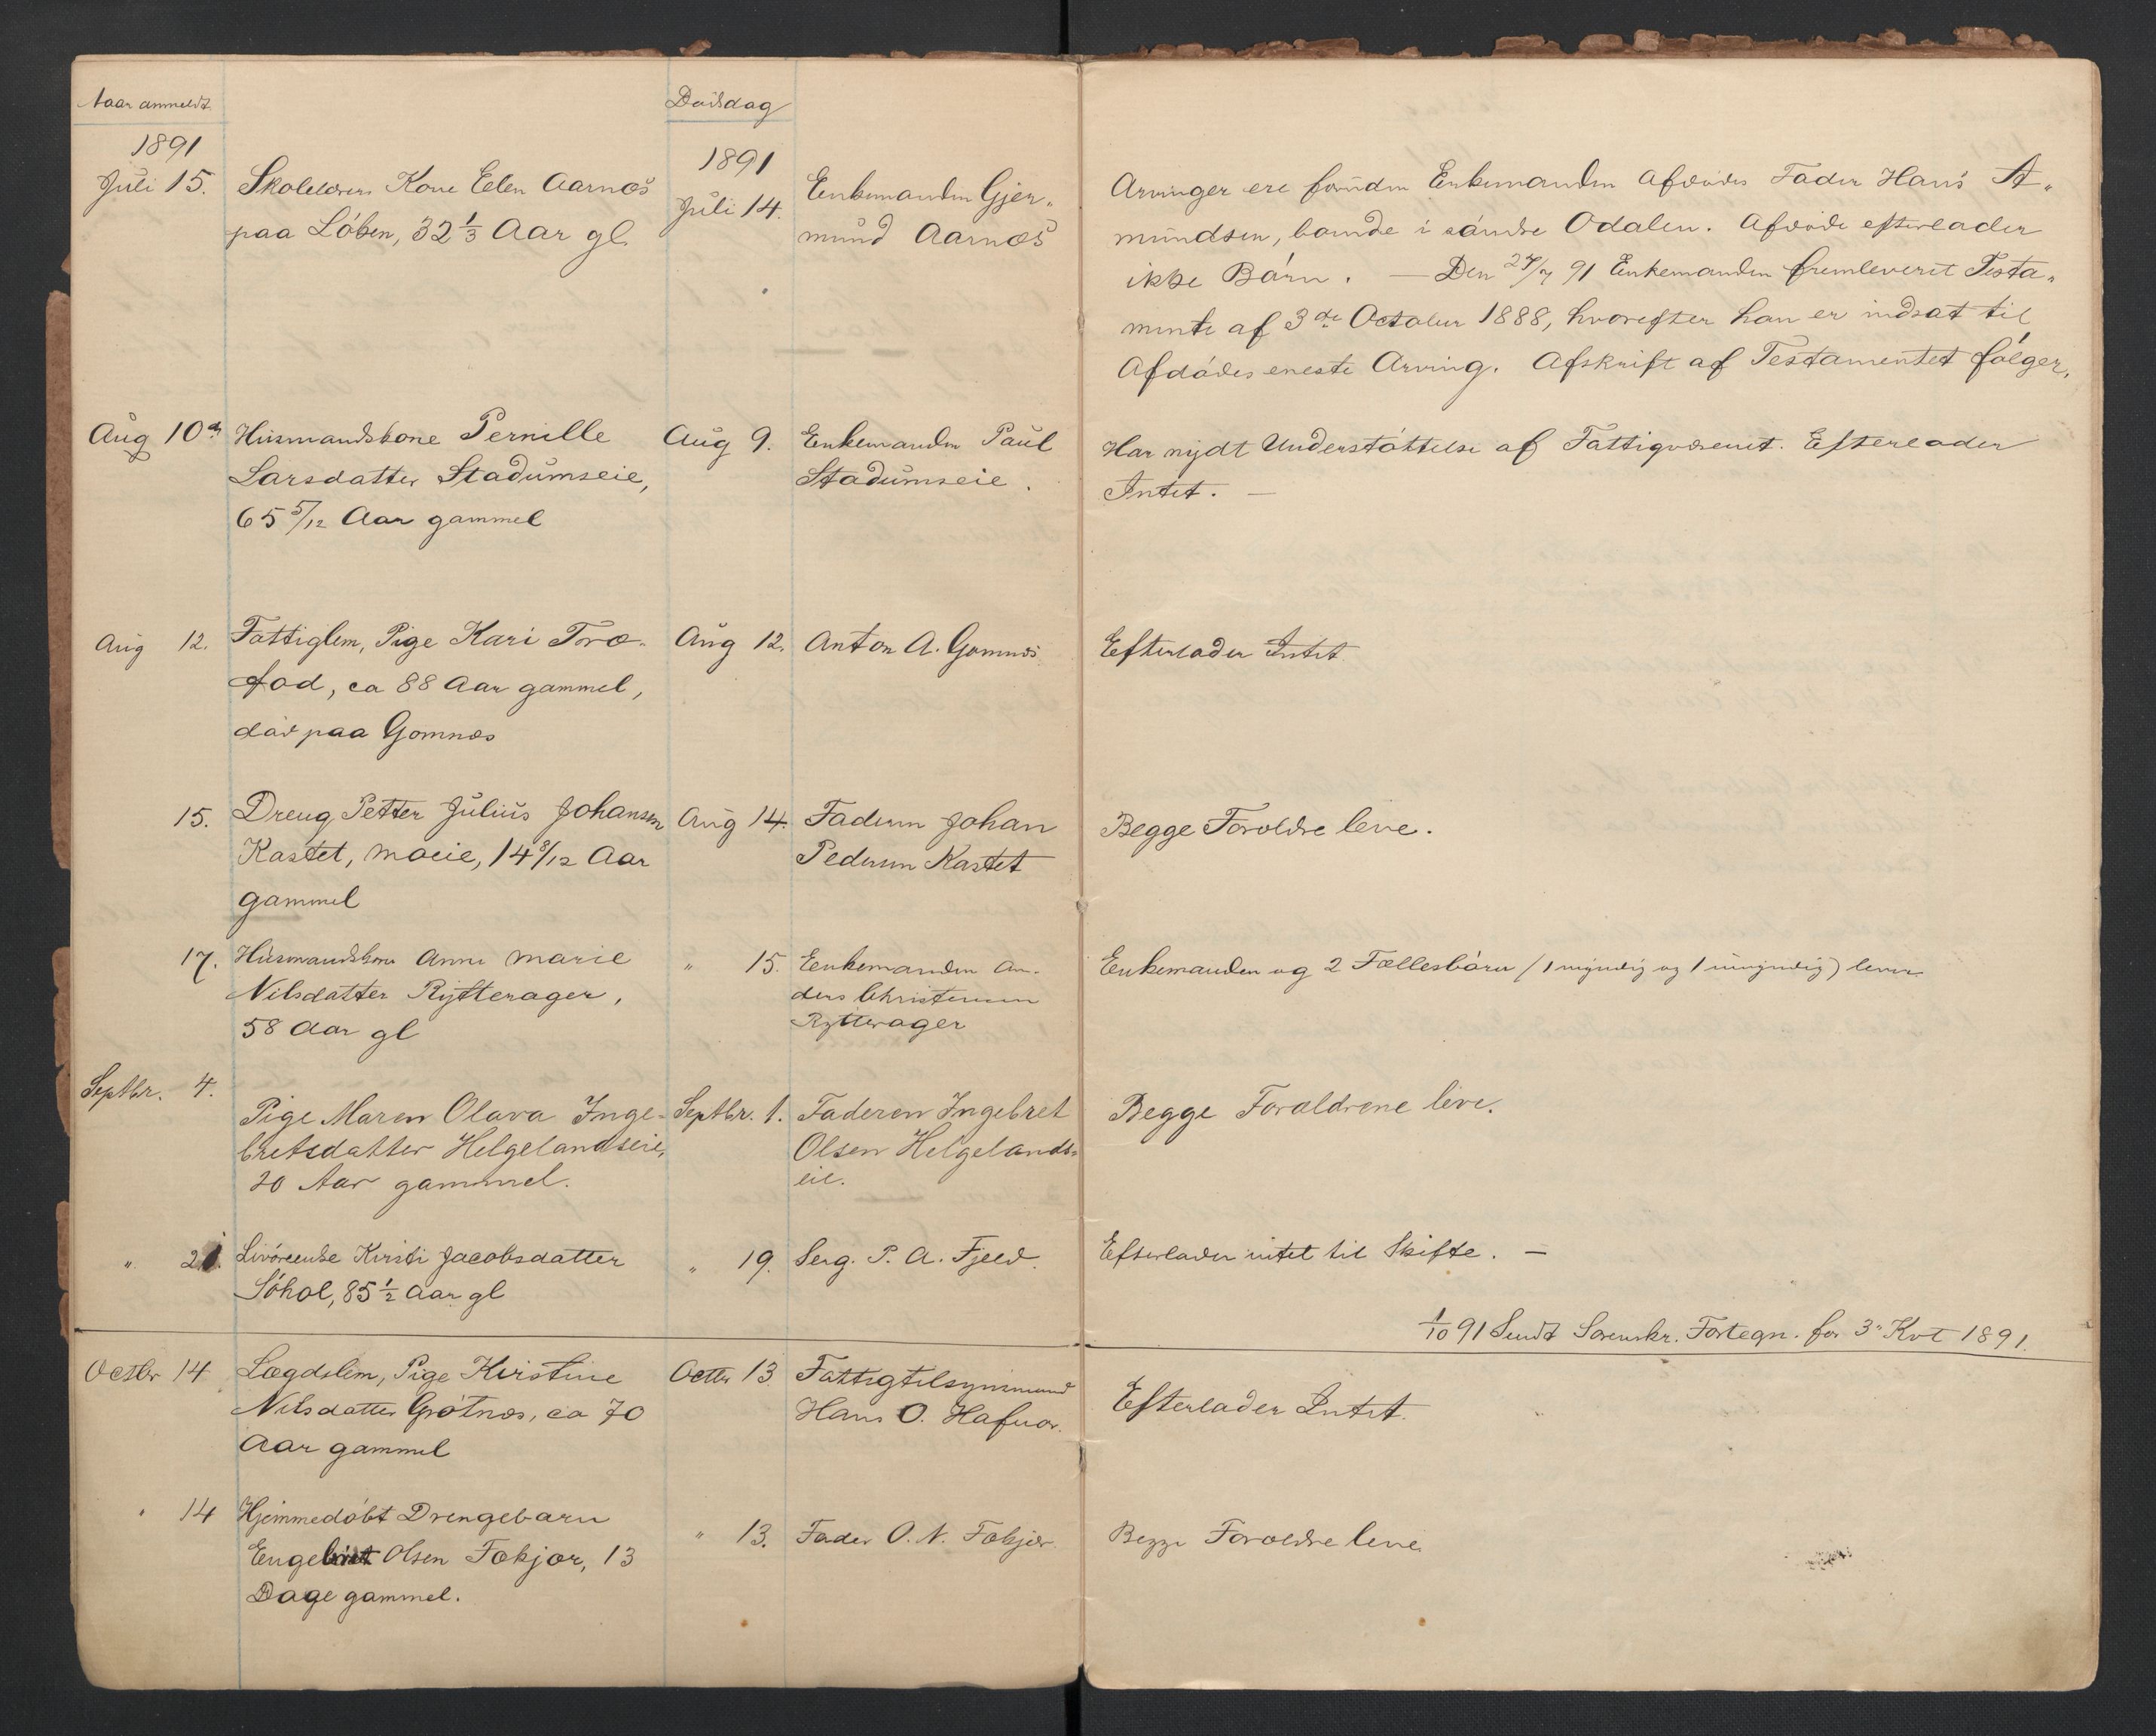 Naar anmeldt
Dødsdag
1891
Juli 15.
Skolelærers Kone Elen Aarnæs
paa Løben, 32 1/3 Aar gl.
1891
Juli 14.
Enkemanden Gjer„
mund Aarnæs
Arvinger ere foruden Enkemanden Afdødes Fader Hans A„
mundsen, boende i søndre Odalen. Afdøde efterlader
ikke Børn. — Den 27/7 91 Enkemanden fremleveret Testa„
mente af 3de October 1888, hvorefter han er indsat til
Afdødes eneste Arving. Afskrift af Testamentet følger.
Aug 10de
Husmandskone Pernille
Larsdatter Stadumseie,
65 5/12 Aar gammel
Aug 9.
Enkemanden Paul
Stadumseie.
Har nydt Understøttelse af Fattigvæsenet. Efterlader
Intet. —
Aug 12.
Fattiglem, Pige Kari Tro„
fod, ca 88 Aar gammel,
død paa Gomnæs
Aug 12.
Anton A. Gomnæs
Efterlader Intet
15.
Dreng Petter Julius Johansen
Kastet, Moeie, 14 8/12 Aar
gammel
Aug 14.
Faderen Johan
Pedersen Kastet
Begge Forældre leve.
17.
Husmandskone Anne Marie
Nilsdatter Rytterager,
58 Aar gl
„ 15.
Enkemanden An„
ders Christensen
Rytterager
Enkemanden og 2 Fællesbørn (1 myndig og 1 umyndig) lever
Septbr. 4.
Pige Maren Olava Inge-
bretsdatter Helgelandseie,
20 Aar gammel.
Septbr. 1.
Faderen Ingebret
Olsen Helgelands-
eie.
Begge Forældrene leve.
„ 21.
Livørende Kirsti Jacobsdatter
Søhol, 85 1/2 Aar gl
„ 19.
Serg. P. A. Fjeld.
Efterlader intet til Skifte. —
1/10 91 Sendt Sorenskr. Fortegn. for 3" Kvt 1891.
Octbr 14
Lægdslem, Pige Kirstine
Nilsdatter Grøtnæs, ca 70
Aar gammel
Octbr 13
Fattigtilsynsmand
Hans O. Hafnor.
Efterlader Intet.
„ 14
Hjemmedøbt Drengebarn
Engebret Olsen Fokjær, 13
Dage gammel.
„ 13.
Fader O. N. Fokjær
Begge Forældre leve.